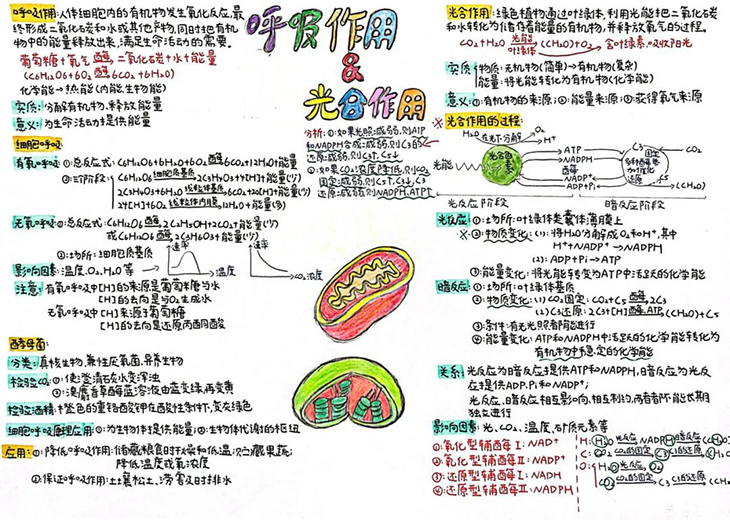 呼吸作用
&
光合作用
呼吸作用:人体细胞内的有机物发生氧化反应,最
终形成二氧化碳和水或其他产物,同时把有机
物中的能量释放出来,满足生命活动的需要。
葡萄糖+氧气 酶→ 二氧化碳+水+能量
(C6H12O6+6O2 酶→ 6CO2+6H2O)
化学能→热能(内能生物能)
实质:分解有机物,释放能量
意义:为生命活动提供能量
细胞呼吸
有氧呼吸 ①总反应式:C6H12O6+6H2O+6O2 酶→ 6CO2+12H2O+能量
②三个阶段:C6H12O6 细胞质基质→ 2C3H4O3+4[H]+能量(少)
2C3H4O3+6H2O 线粒体基质→ 6CO2+20[H]+能量(少)
24[H]+6O2 线粒体内膜→ 12H2O+能量(多)
无氧呼吸:①总反应式:C6H12O6 酶→ 2C2H5OH+2CO2+能量(少)
或C6H12O6 酶→ 2C3H6O3+能量(少)
②场所:细胞质基质
影响因素:温度、O2、H2O等
速率
温度
速率
O2浓度
注意:有氧呼吸中[H]的来源是葡萄糖与水
[H]的去向是与O2生成水
无氧呼吸中[H]来源于葡萄糖
[H]的去向是还原丙酮酸
酵母菌:
分类:真核生物,兼性厌氧菌,异养生物
检验CO2:①使澄清石灰水变浑浊
②溴麝香草酚蓝溶液由蓝变绿,再变黄
检验酒精:橙色的重铬酸钾在酸性条件下,变灰绿色
细胞呼吸原理应用:①为生物体提供能量;②生物体代谢的枢纽
应用:①降低呼吸作用:储藏粮食时干燥和低温,贮藏果蔬:
降低温度或氧浓度
②保证呼吸作用:土壤松土,涝害及时排水
分析:①如果光照:减弱,则ATP
和NADPH合成:减弱,则C3的
还原:减弱,则C3↑,C5↓
②如果CO2:浓度降低,则CO2
固定:减弱,则C5↑,C3↓,C3
还原:减弱,则NADPH,ATP↑
光合作用:绿色植物通过叶绿体,利用光能把二氧化碳
和水转化为储存着能量的有机物,并释放氧气的过程。
CO2+H2O 光能→叶绿体 (CH2O)+O2
实质:物质:无机物(简单)→有机物(复杂)
能量:将光能转化为有机物(化学能)
意义:①有机物的来源;②能量来源;③获得氧气来源
※光合作用的过程:
H2O 在光下分解
O2
H+
光能
光合色素
ATP
NADPH
酶
NADP+
ADP+Pi
C3
CO2
固定
还原
C5
(CH2O)
光反应阶段
暗反应阶段
光反应 ①场所:叶绿体类囊体薄膜上
※②物质变化:(1):将H2O分解成O2和H+,其中
H++NADP+→NADPH
(2):ADP+Pi→ATP
③能量变化:将光能转变为ATP中活跃的化学能
暗反应:①场所:叶绿体基质
②物质变化:(1)CO2固定:CO2+C5 酶→ 2C3
(2)C3还原:2C3+[H] 酶,ATP→ (CH2O)+C5
③条件:有无光照都能进行
④能量变化:ATP和NADPH中活跃的化学能转化为
有机物中稳定的化学能
关系:光反应为暗反应提供ATP和NADPH,暗反应为光反
应提供ADP、Pi和NADP+;
光反应、暗反应相互影响,相互制约,两者都不能长期
独立进行
影响因素:光、CO2、温度、矿质元素等
①:氧化型辅酶Ⅰ:NAD+
②:氧化型辅酶Ⅱ:NADP+
③:还原型辅酶Ⅰ:NADH
④:还原型辅酶Ⅱ:NADPH
H:H2O 光反应→ NADPH 暗反应→ (CH2O)
C:CO2 CO2的固定→ C3 C3的还原→ (CH2O)
O:H2O 光反应→ O2
CO2 CO2的固定→ C3 C3的还原→ (CH2